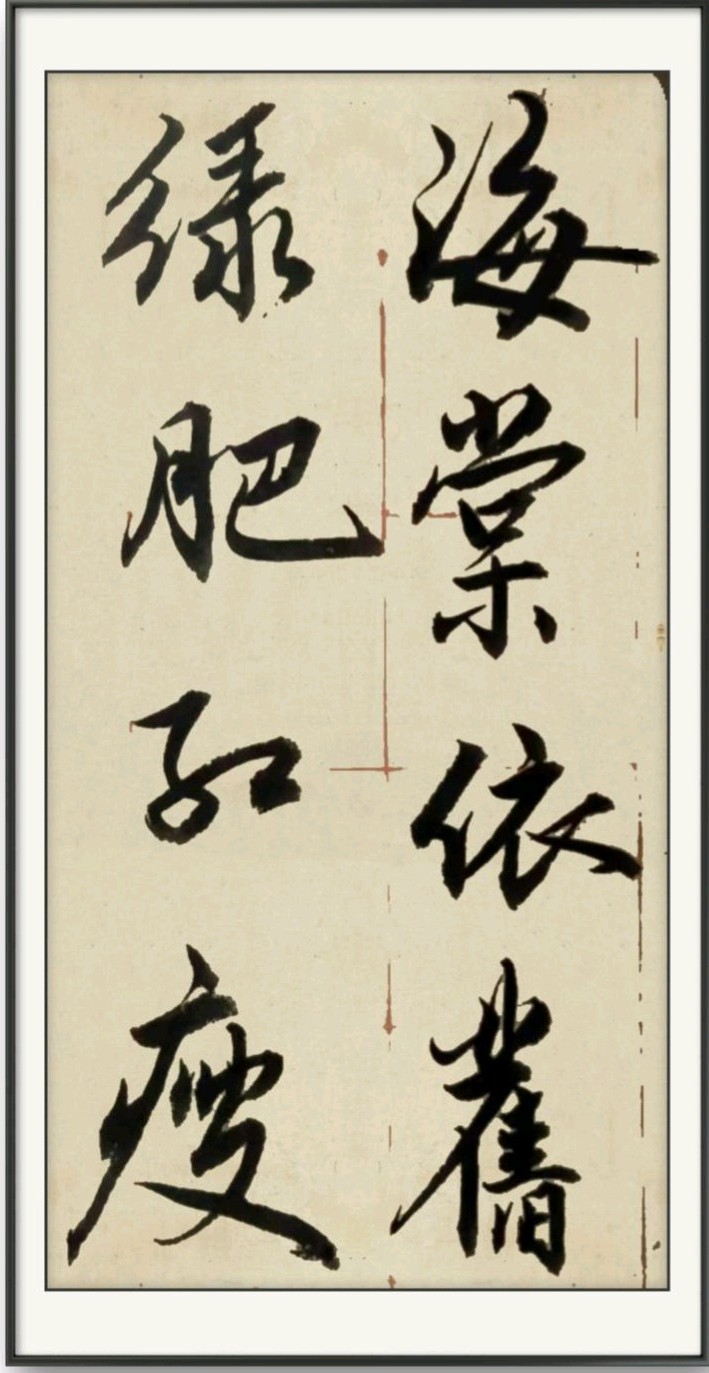 海棠依舊
綠肥紅瘦